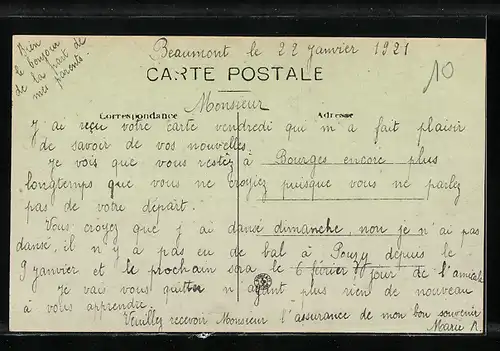 Beaumont le 22 Janvier 1921
Bien
le bonjour
de la part de
mes parents.
10
CARTE POSTALE
Monsieur
Correspondance
Adresse
J'ai reçu votre carte vendredi qui m'a fait plaisir
de savoir de vos nouvelles.
Je vois que vous restez à Bourges encore plus
longtemps que vous ne croyiez puisque vous ne parlez
pas de votre départ.
Vous croyez que j'ai dansé dimanche, non je n'ai pas
dansé, il n'y a pas eu de bal à Pouzy depuis le
9 janvier et le prochain sera le 6 février jour de l'
Je vais vous quitter n'ayant plus rien de nouveau
à vous apprendre.
Veuillez recevoir Monsieur l'assurance de mon bon souvenir
Marie R.